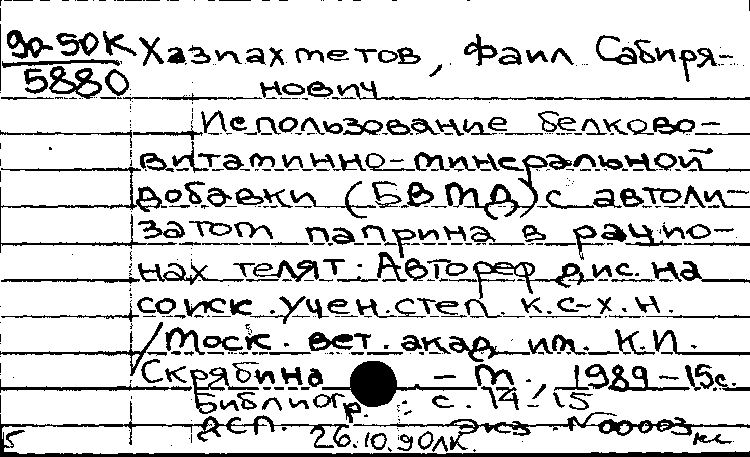 90-50К Хазиахметов, Фаил Сабиря-
5880 нович
Использование белково-
витаминно-минеральной
добавки (БВМД) с автоли-
затом паприна в рацио-
нах телят: Автореф дис. на
соиск. учен. степ. к. с-х. н.
/Моск. вет. акад им. К.И.
Скрябина . - М., 1989 - 15с.
Библиогр.: с. 14-15
ДСП. экз. N 00003
5 26.10.90